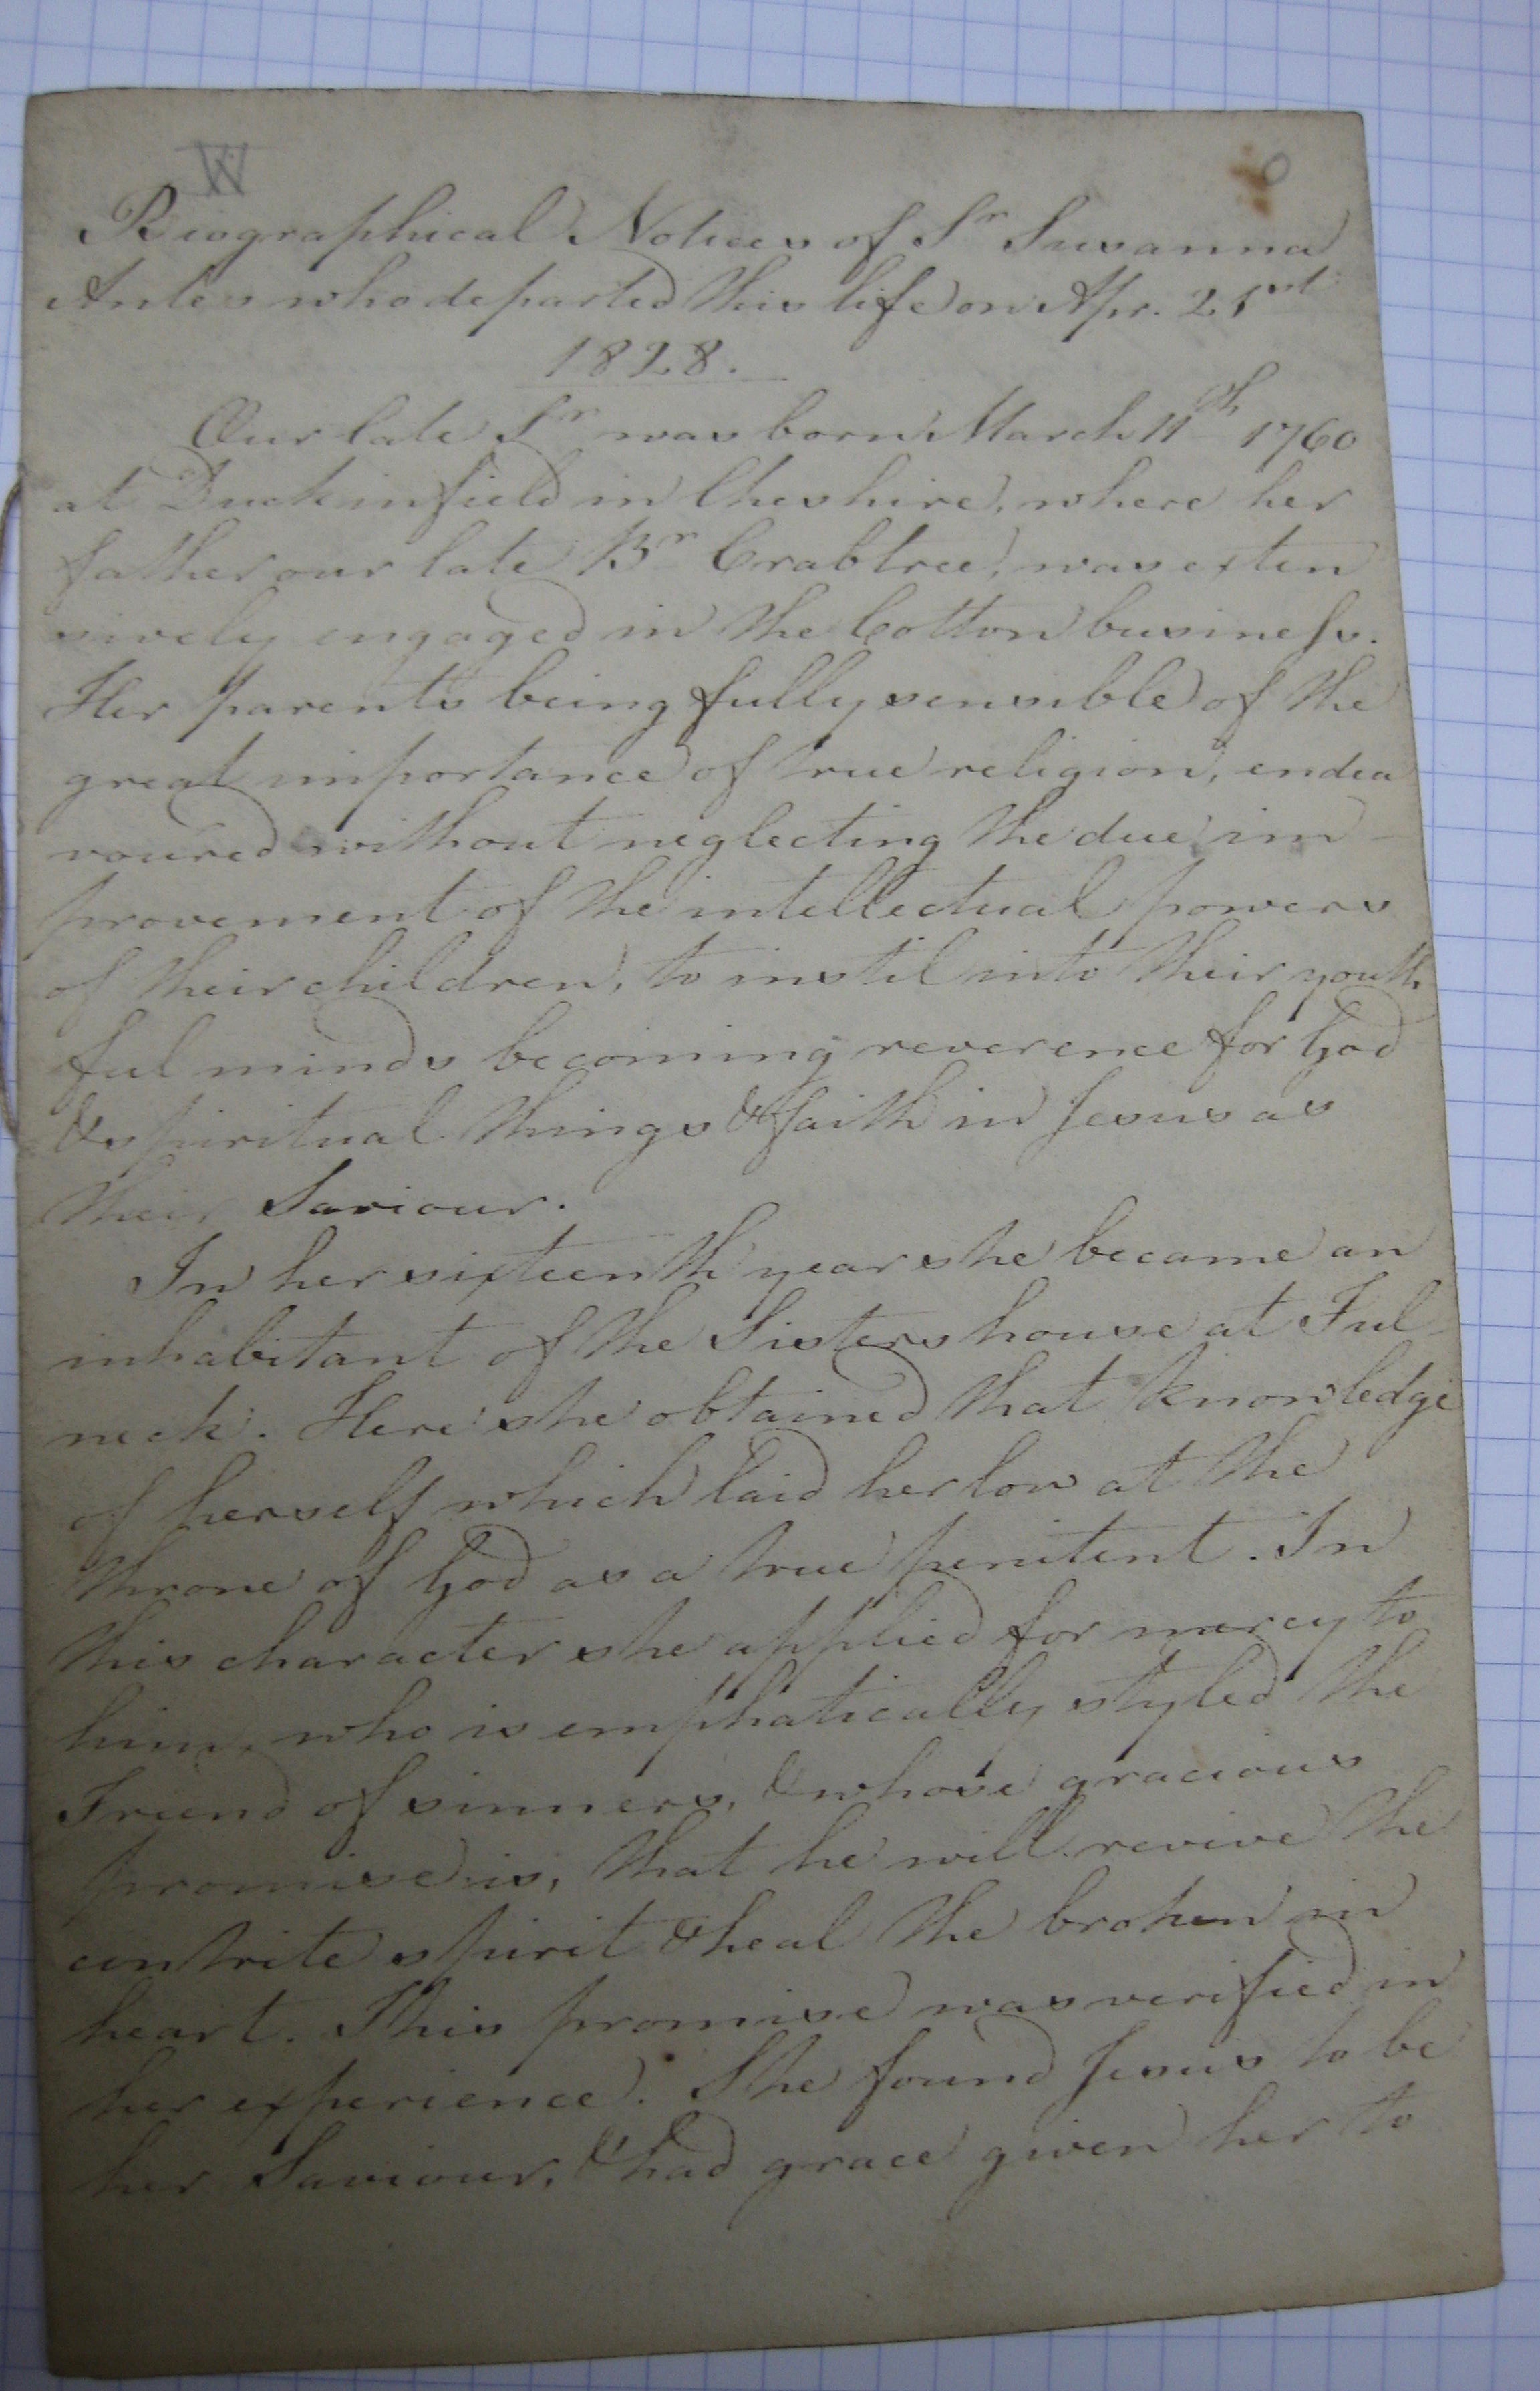 W
Biographical Notices of Sr Susanna
Antes who departed this life on Apr. 21st
1828.
Our late Sr was born March 11th 1760
at Duckinfield in Cheshire, where her
father our late Br Crabtree, was exten
sively engaged in the Cotton business.
Her parents being fully sensible of the
great importance of true religion, endea
voured without neglecting the due im-
provement of the intellectual powers
of their children, to instil into their youth
ful minds becoming reverence for God
& spiritual things & faith in Jesus as
their Saviour.
In her sixteenth year she became an
inhabitant of the Sisters house at Ful-
neck. Here she obtained that knowledge
of herself which laid her low at the
throne of God as a true penitent. In
this character she applied for mercy to
him, who is emphatically styled the
Friend of sinners, & whose gracious
promise is, that he will revive the
contrite spirit & heal the broken in
heart. This promise was verified in
her experience. She found Jesus to be
her Saviour, & had grace given her to